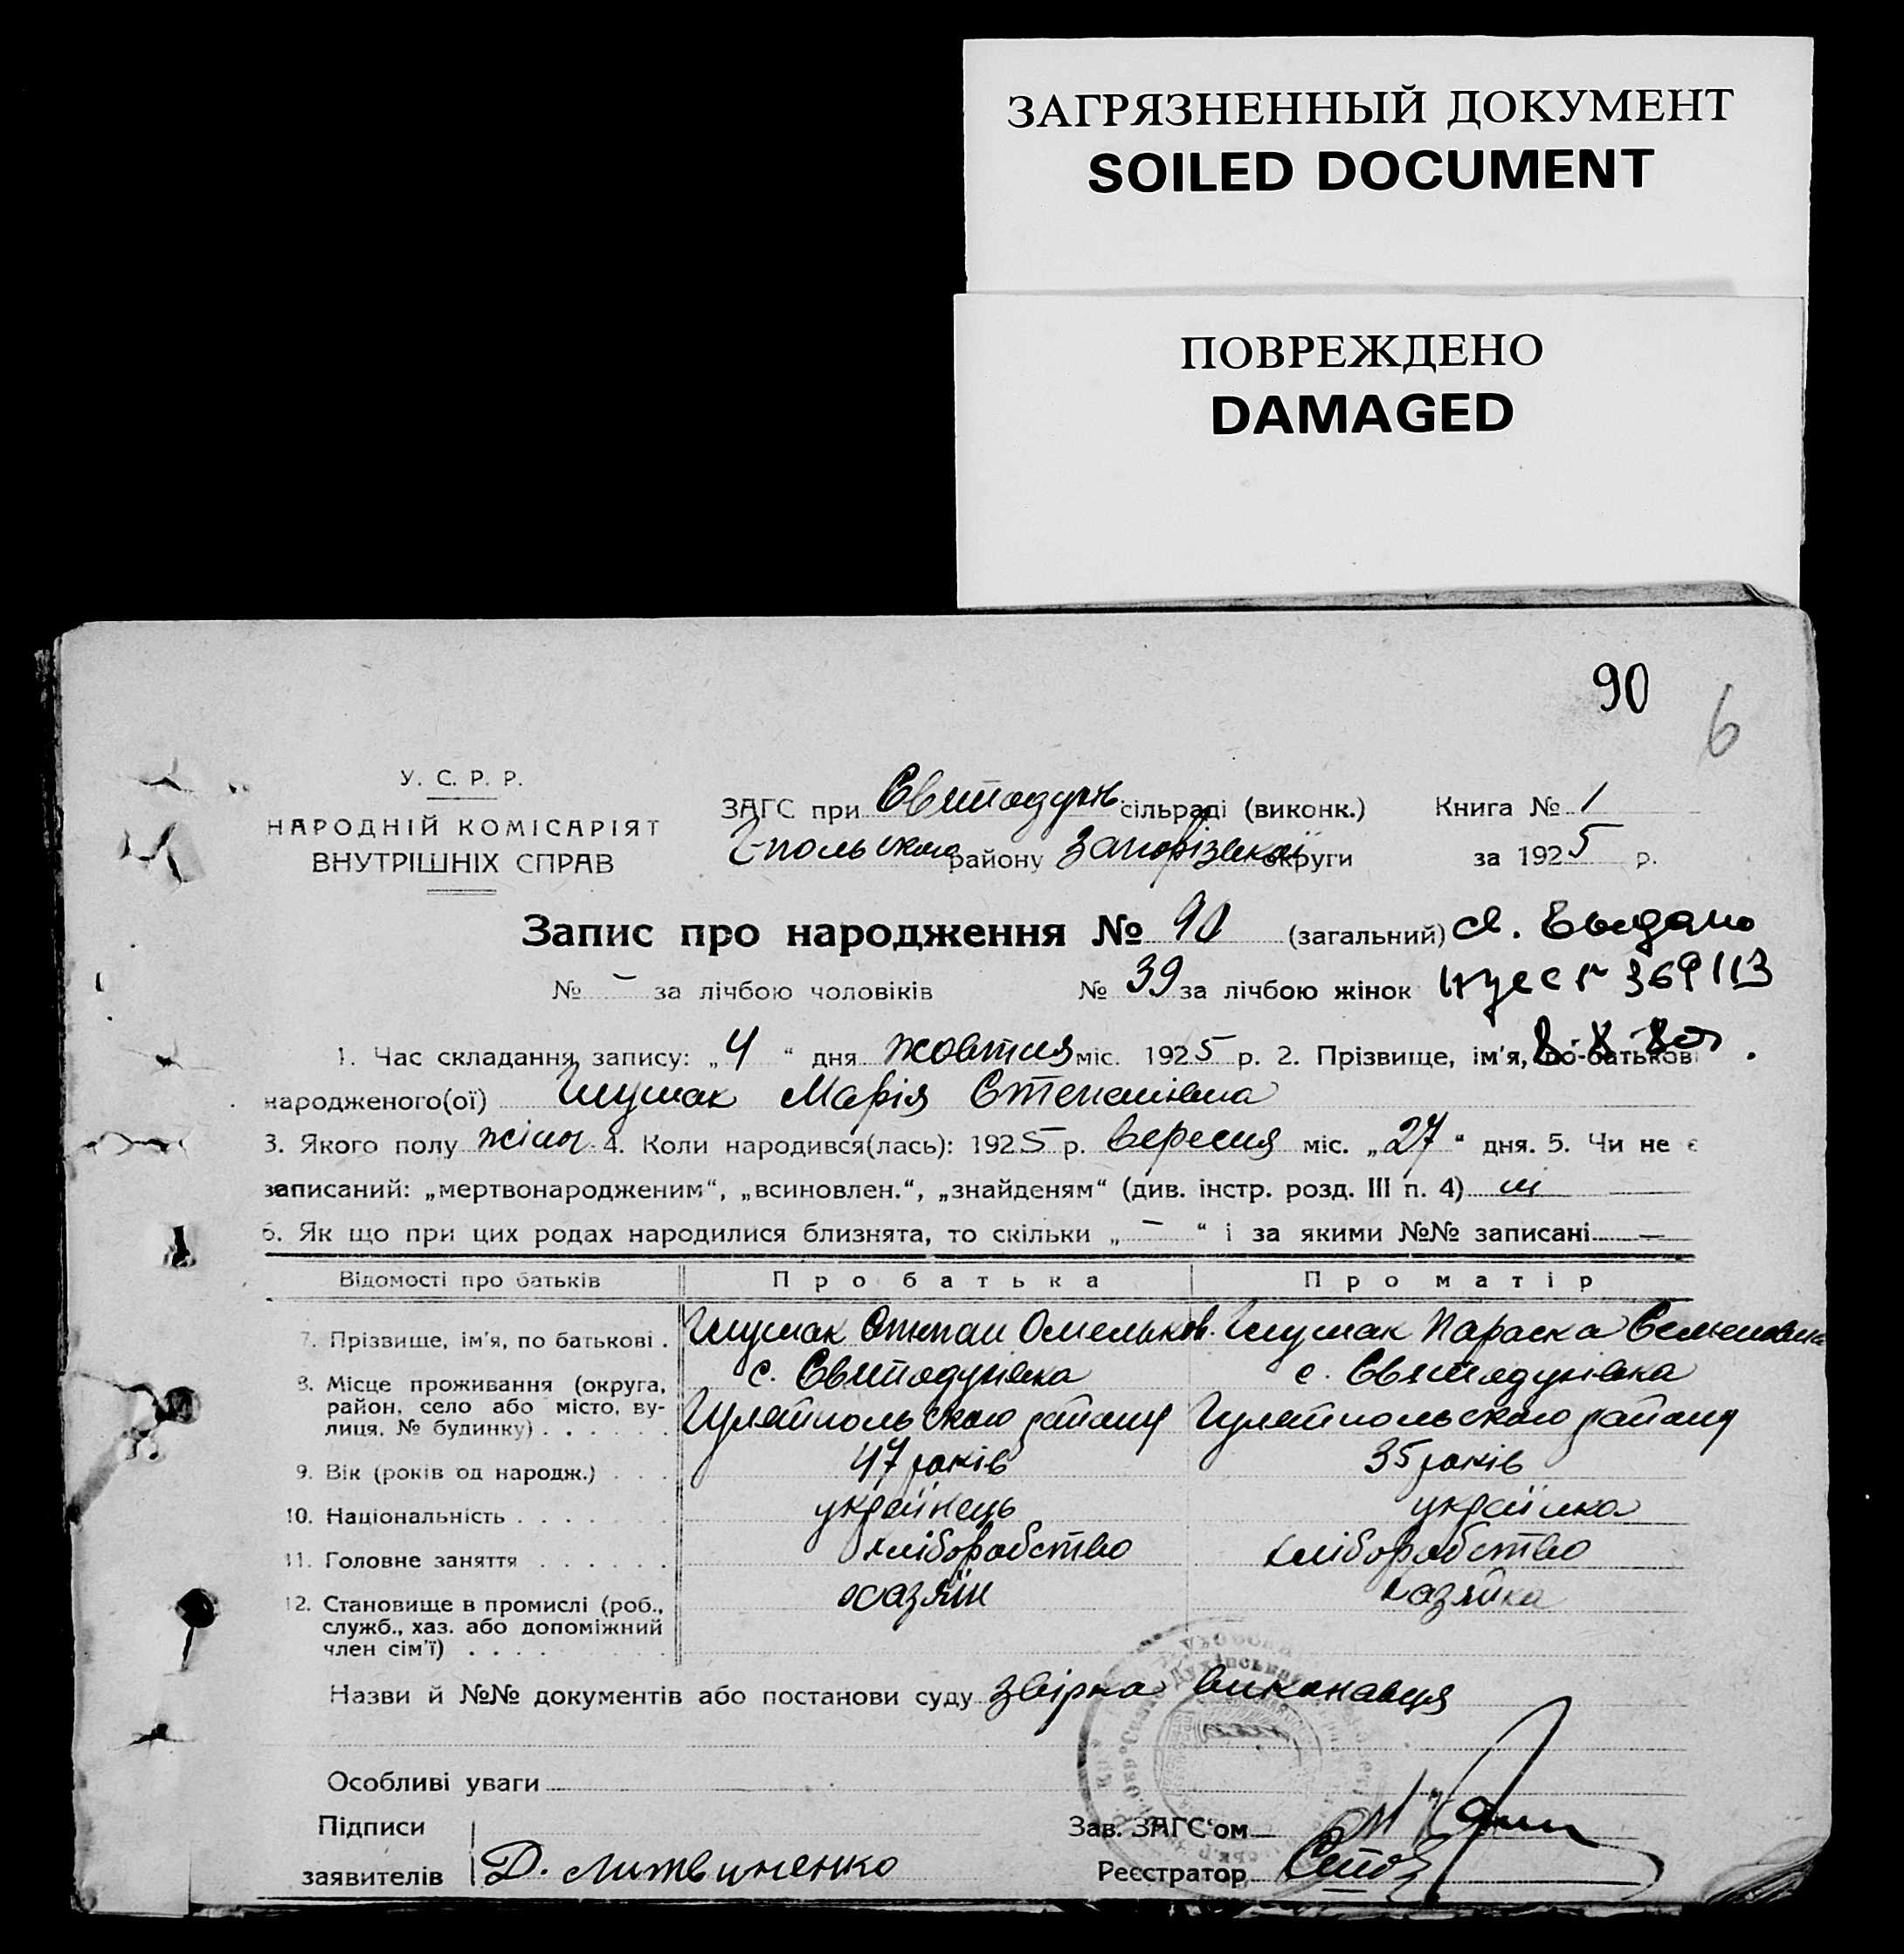 ЗАГРЯЗНЕННЫЙ ДОКУМЕНТ
SOILED DOCUMENT
ПОВРЕЖДЕНО
DAMAGED
90
6
У. С. Р. Р.
НАРОДНІЙ КОМІСАРІЯТ
ВНУТРІШНІХ СПРАВ
ЗАГС при Святодухів. сільраді (виконк.) Книга № 1
Гпольського району Запорізької округи за 1925 р.
Запис про народження № 90 (загальний) св. выдано
№ – за лічбою чоловіків № 39 за лічбою жінок 369113
1. Час складання запису: „4“ дня жовтня міс. 1925 р. 2. Прізвище, ім'я, по-батькові
народженого(ої) Марія Степанівна
3. Якого полу жіноч. 4. Коли народився(лась): 1925 р. вересня міс. „27“ дня. 5. Чи не є
записаний: „мертвонародженим“, „всиновлен.“, „знайденям“ (див. інстр. розд. III п. 4) ні
6. Як що при цих родах народилися близнята, то скільки „–“ і за якими №№ записані –
Відомості про батьків Про батька Про матір
7. Прізвище, ім'я, по батькові . Степан Омельков. Параска Семеновна
8. Місце проживання (округа, район, село або місто, вулиця, № будинку) . . . . . . с. Святодухівка с. Святодухівка
Гуляйпольського району Гуляйпольського району
9. Вік (років од народж.) . . . 47 років 35 років
10. Національність . . . . . . . українець українка
11. Головне заняття . . . . . . хліборобство хліборобство
12. Становище в промислі (роб., служб., хаз. або допоміжний член сім'ї) . . . . хазяїн хазяйка
Назви й №№ документів або постанови суду звірка виконавця
Особливі уваги
Підписи
заявителів Д. Литвиненко
Зав. ЗАГС'ом
Реєстратор